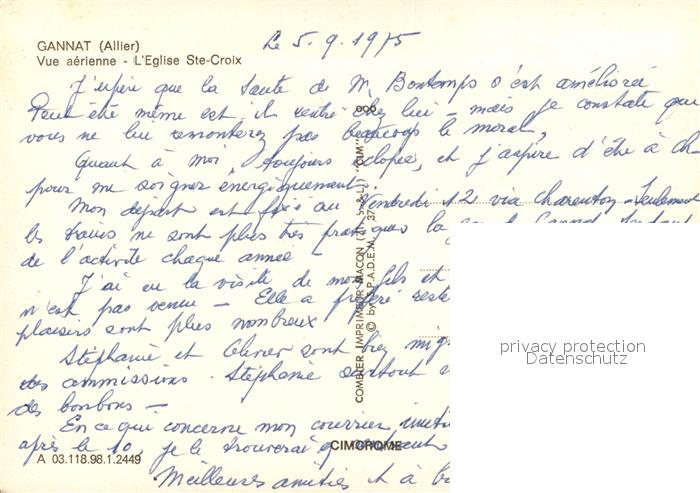 GANNAT (Allier)
Vue aérienne - L'Eglise Ste-Croix
Le 5.9.1975
J'espère que la santé de M. Bontemps s'est améliorée
Peut être même est il rentré chez lui - mais je constate que
vous ne lui remonterez pas beaucoup le moral,
Quant à moi toujours éclopée, et j'aspire d'être à Ch
pour me soigner énergiquement.
Mon départ est fixé au Vendredi 12 via Charenton - Seulement
les trains ne sont plus très pratiques la gare de Gannat perdant
de l'activité chaque année -
J'ai eu la visite de mon fils et
n'est pas venue - Elle a préféré reste
plaisirs sont plus nombreux
Stéphanie et Olivier sont bien mign
des commissions. Stéphanie surtout
des bonbons -
En ce qui concerne mon courrier, inuti
après le 10, je le trouverai
Meilleures amitiés et à b
COMBIER IMPRIMEUR MACON (71. S.-&-L.) "CIM"
© by S.P.A.D.E.M. 37
CIMCROME
A 03.118.98.1.2449
privacy protection
Datenschutz